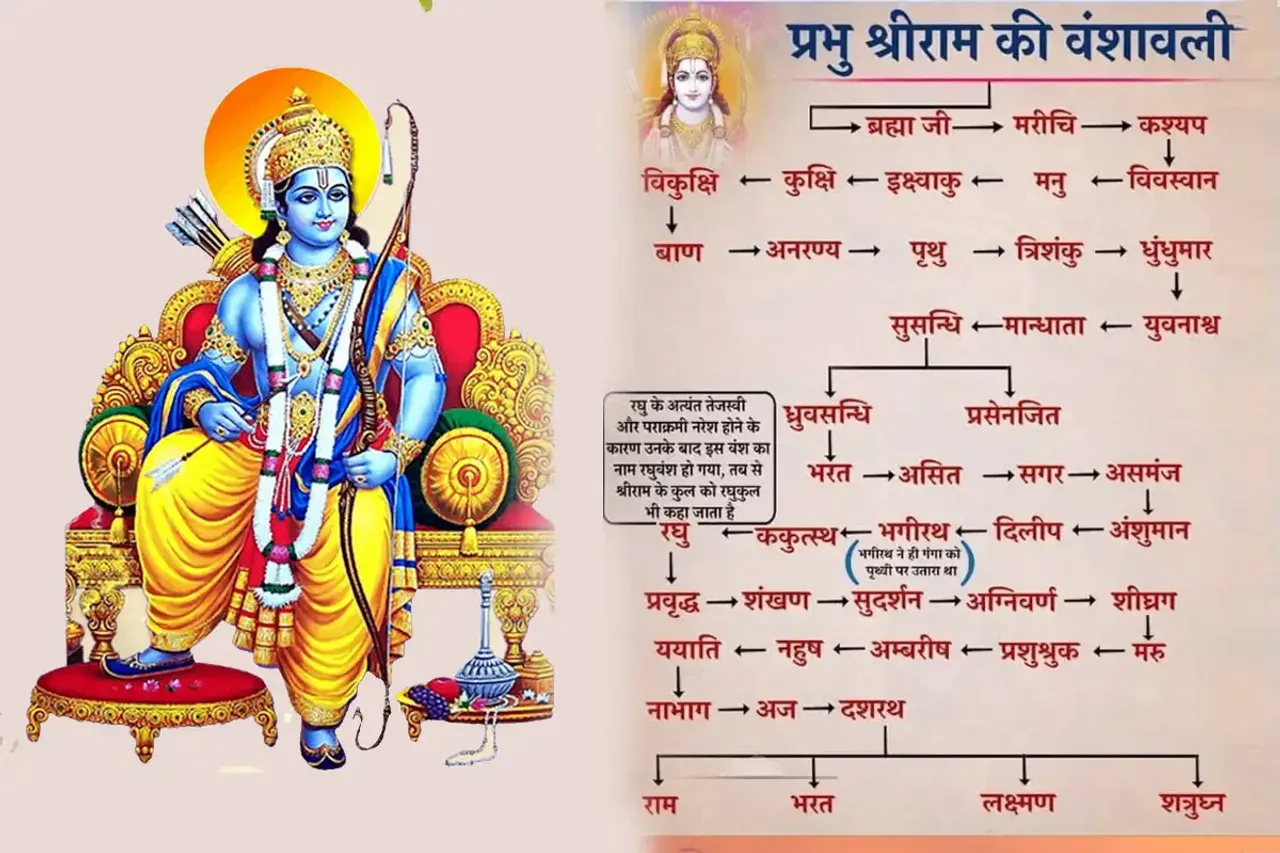 प्रभु श्रीराम की वंशावली
ब्रह्मा जी मरीचि कश्यप
विकुक्षि कुक्षि इक्ष्वाकु मनु विवस्वान
बाण अनरण्य पृथु त्रिशंकु धुंधुमार
सुसन्धि मान्धाता युवनाश्व
रघु के अत्यंत तेजस्वी
और पराक्रमी नरेश होने के
कारण उनके बाद इस वंश का
नाम रघुवंश हो गया, तब से
श्रीराम के कुल को रघुकुल
भी कहा जाता है
ध्रुवसन्धि प्रसेनजित
भरत असित सगर असमंज
रघु ककुत्स्थ भगीरथ दिलीप अंशुमान
भगीरथ ने ही गंगा को
पृथ्वी पर उतारा था
प्रवृद्ध शंखण सुदर्शन अग्निवर्ण शीघ्रग
ययाति नहुष अम्बरीष प्रशुश्रुक मरु
नाभाग अज दशरथ
राम भरत लक्ष्मण शत्रुघ्न